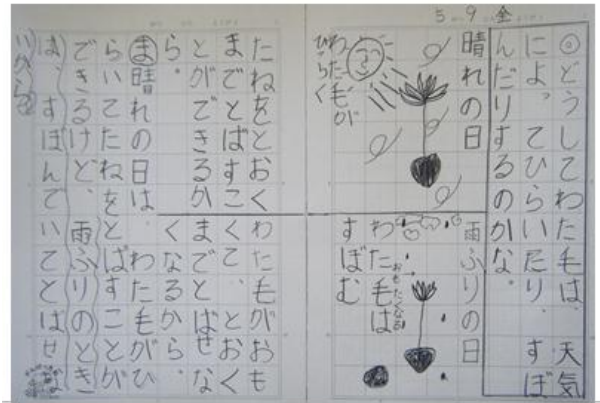 5 9 金
◎どうしてわた毛は、天気
によってひらいたり、すぼ
んだりするのかな。
晴れの日
わた毛が
ひらく
雨ふりの日
おもたくなる
わた毛は
すぼむ
たねをとおく
までとばすこ
とができるか
ら。
わた毛がおも
くて、とおく
までとばせな
くなるから。
ま晴れの日は、わた毛がひ
らいてたねをとばすことが
できるけど、雨ふりのとき
は、すぼんでいてとばせな
いから。